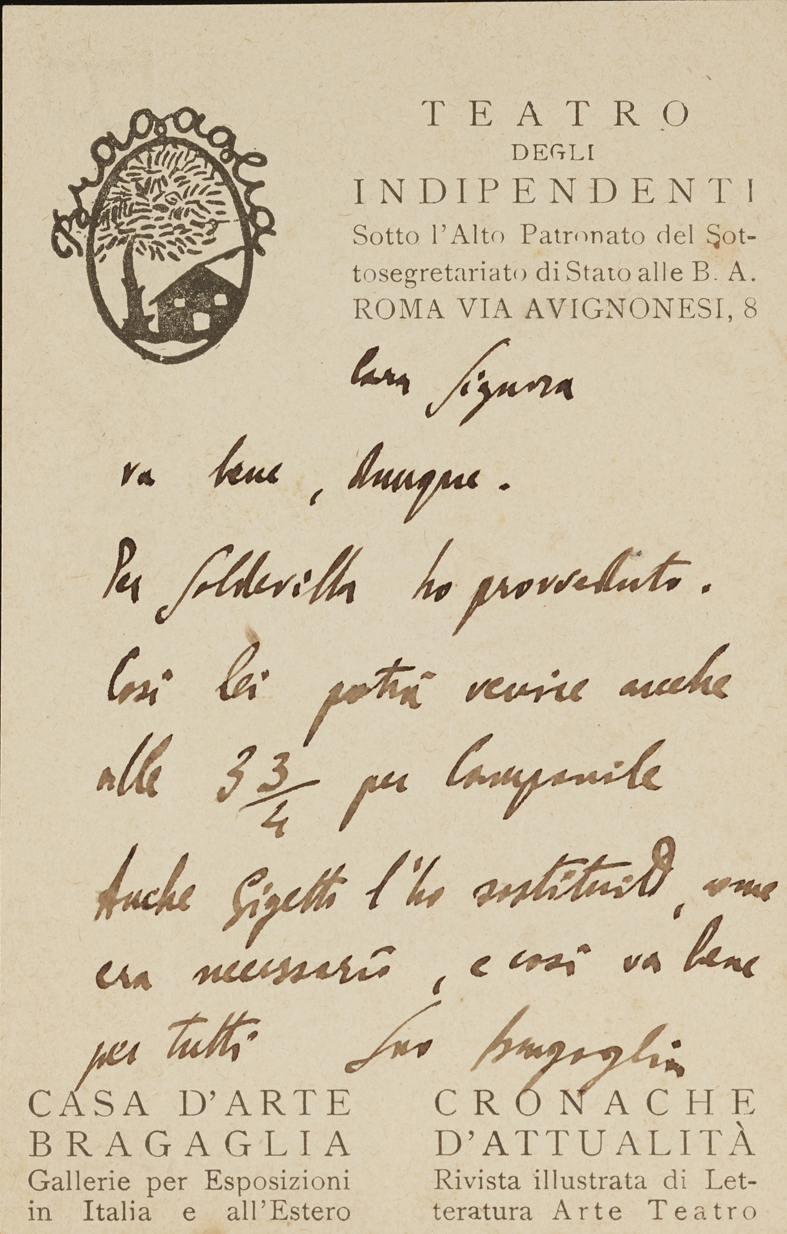 Bragaglia
TEATRO
DEGLI
INDIPENDENTI
Sotto l'Alto Patronato del Sot-
tosegretariato di Stato alle B. A.
ROMA VIA AVIGNONESI, 8
Cara Signora
va bene, dunque.
Per Soldevilla ho provveduto.
Così lei potrà venire anche
alle 3 3/4 per Campanile
Anche Gigetto l'ho sostituito, come
era necessario, e così va bene
per tutti Suo Bragaglia
CASA D'ARTE
BRAGAGLIA
Gallerie per Esposizioni
in Italia e all'Estero
CRONACHE
D'ATTUALITÀ
Rivista illustrata di Let-
teratura Arte Teatro